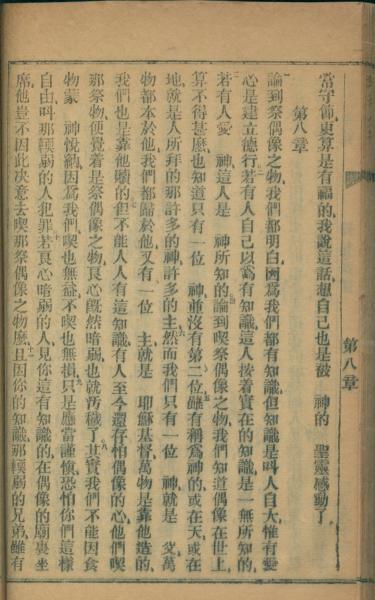 當守節、更算是有福的、我說這話、想自己也是被　神的　聖靈感動了、
第八章
論到祭偶像之物、我們都明白、因爲我們都有知識、但知識是叫人自大、惟有愛
心是建立德行、若有人自己以爲有知識、這人按着實在的知識、是一無所知的、
若有人愛　神、這人是　神所知的、論到喫祭偶像之物、我們知道偶像在世上、
算不得甚麼、也知道只有一位　神、並沒有第二位、雖有稱爲神的、或在天、或在
地、就是人所拜的那許多的神、許多的主、然而我們只有一位　神、就是　父、萬
物都本於他、我們都歸於他、又有一位　主、就是　耶穌基督、萬物是靠他造的、
我們也是靠他贖的、但不能人人有這知識、有人至今還存怕偶像的心、他們喫
那祭物、便覺着是祭偶像之物、良心旣然暗弱、也就汚穢了、其實我們不能因食
物蒙　神悅納、因爲我們喫也無益、不喫也無損、只是應當謹慎、恐怕你們這樣
自由、叫那輭弱的人犯罪、若良心暗弱的人、見你這有知識的、在偶像的廟裏坐
席、他豈不因此決意去喫那祭偶像之物麼、且因你的知識、那輭弱的兄弟、雖有
第八章